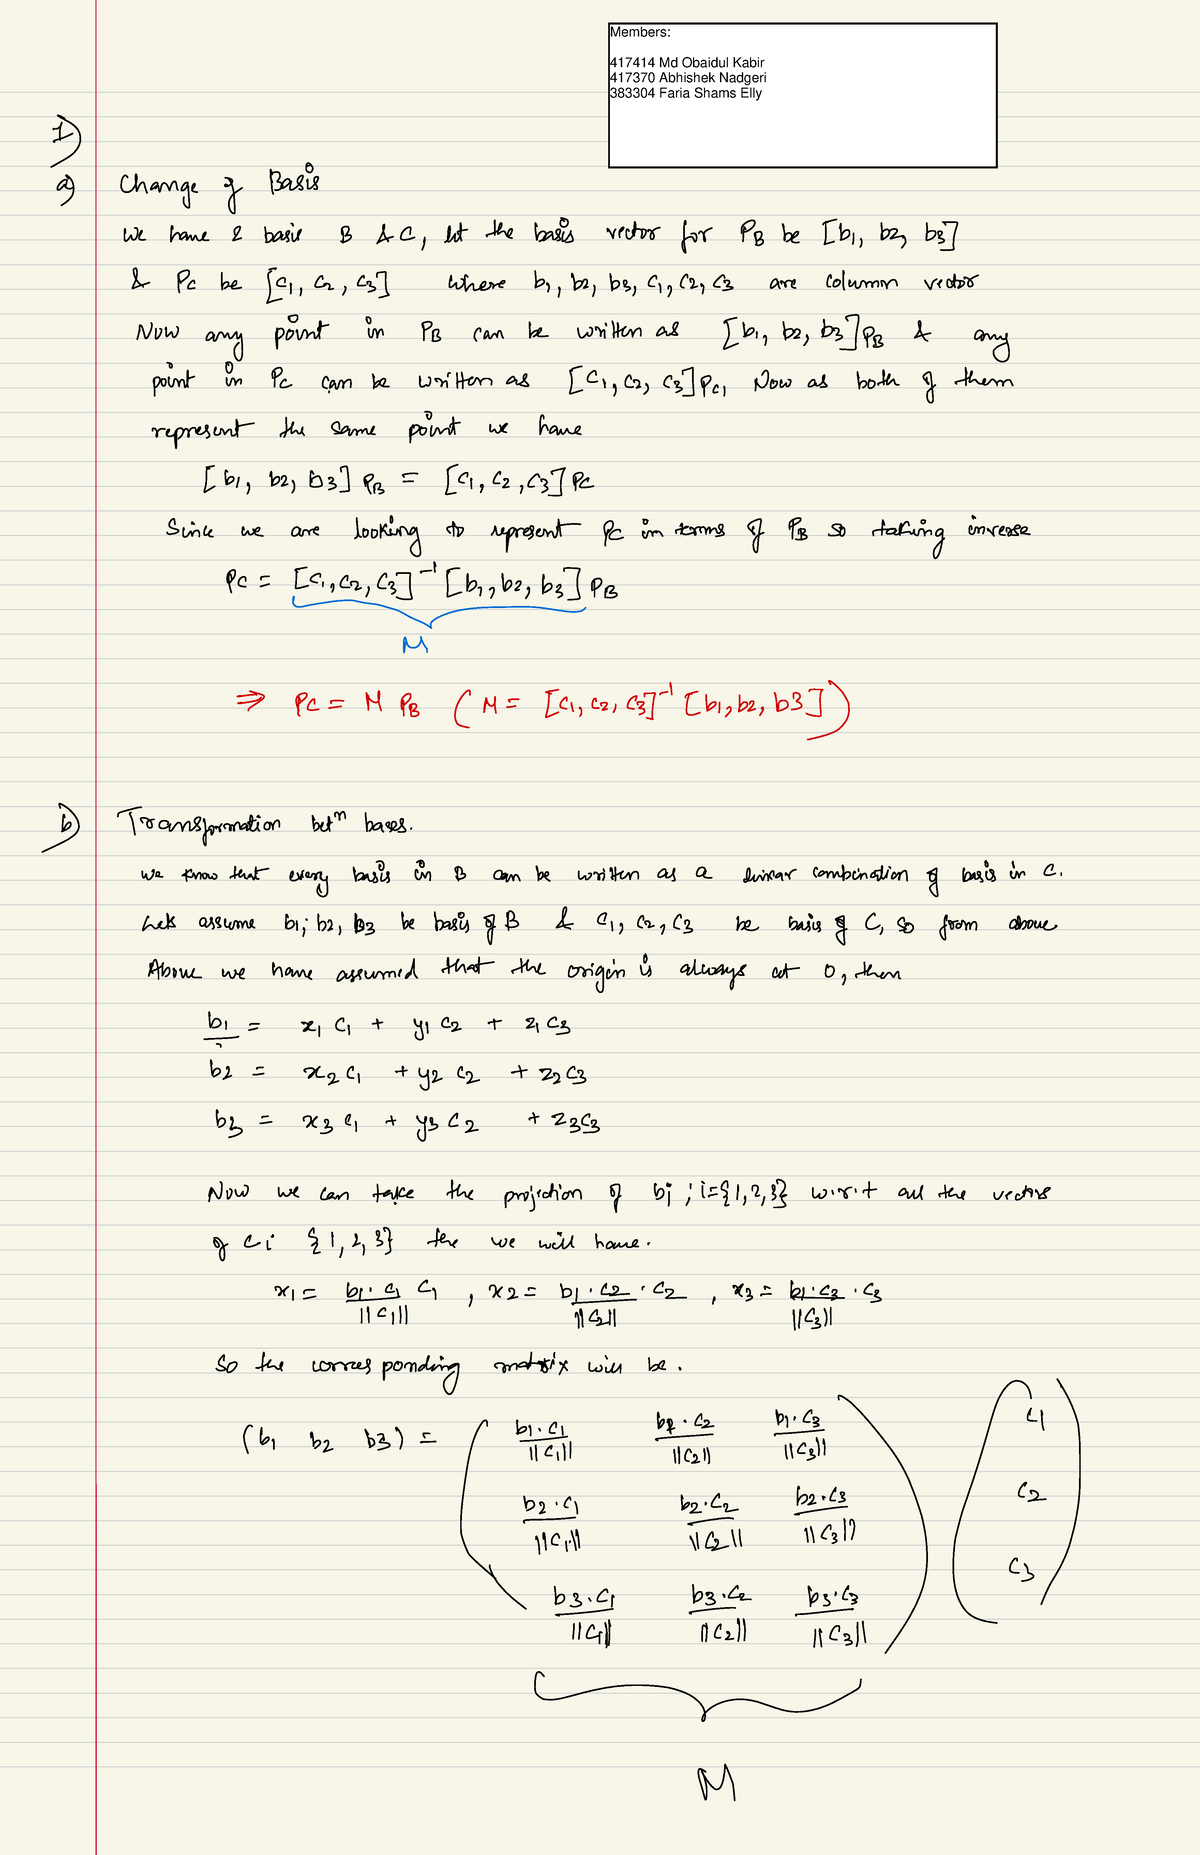 Members:
417414 Md Obaidul Kabir
417370 Abhishek Nadgeri
383304 Faria Shams Elly
1)
a) Change of Basis
We have 2 basis B & C, let the basis vector for PB be [b1, b2, b3]
& PC be [c1, c2, c3] where b1, b2, b3, c1, c2, c3 are column vector
Now any point in PB can be written as [b1, b2, b3] PB & any
point in PC can be written as [c1, c2, c3] PC, Now as both of them
represent the same point we have
[b1, b2, b3] PB = [c1, c2, c3] PC
Since we are looking to represent PC in terms of PB so taking inverse
PC = [c1, c2, c3]⁻¹ [b1, b2, b3] PB
M
⇒ PC = M PB (M = [c1, c2, c3]⁻¹ [b1, b2, b3])
b) Transformation betⁿ bases.
we know that every basis in B can be written as a linear combination of basis in C.
Lets assume b1, b2, b3 be basis of B & c1, c2, c3 be basis of C, so from above
Above we have assumed that the origin is always at 0, then
b1 = x1 c1 + y1 c2 + z1 c3
b2 = x2 c1 + y2 c2 + z2 c3
b3 = x3 c1 + y3 c2 + z3 c3
Now we can take the projection of bi ; i={1,2,3} w.r.t all the vectors
of ci {1,2,3} the we will have.
x1 = b1·c1/||c1|| c1 , x2 = b1·c2/||c2|| · c2 , x3 = b1·c3/||c3|| · c3
So the corresponding matrix will be.
(b1 b2 b3) = ( b1·c1/||c1|| b1·c2/||c2|| b1·c3/||c3|| ) ( c1
b2·c1/||c1|| b2·c2/||c2|| b2·c3/||c3|| c2
b3·c1/||c1|| b3·c2/||c2|| b3·c3/||c3|| c3 )
M